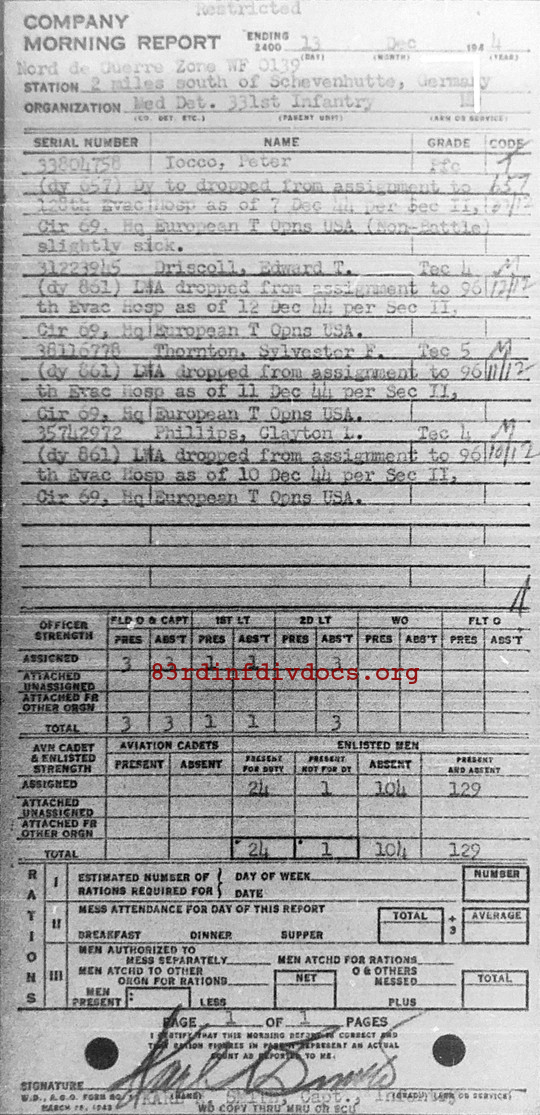 Restricted
COMPANY
MORNING REPORT ENDING 2400 13 Dec 1944
(DAY) (MONTH) (YEAR)
Nord de Guerre Zone WF 0139
STATION 2 miles south of Schevenhutte, Germany
ORGANIZATION Med Det. 331st Infantry
(CO. DET. ETC.) (PARENT UNIT) (ARM OR SERVICE)
SERIAL NUMBER NAME GRADE CODE
33804758 Iocco, Peter Pfc
(dy 657) Dy to dropped from assignment to 657
128th Evac Hosp as of 7 Dec 44 per Sec II,
Cir 69, Hq European T Opns USA (Non-Battle)
slightly sick.
31223945 Driscoll, Edward T. Tec 4 M
(dy 861) LWA dropped from assignment to 96 12/12
th Evac Hosp as of 12 Dec 44 per Sec II,
Cir 69, Hq European T Opns USA.
38116778 Thornton, Sylvester F. Tec 5 M
(dy 861) LWA dropped from assignment to 96 11/12
th Evac Hosp as of 11 Dec 44 per Sec II,
Cir 69, Hq European T Opns USA.
35742972 Phillips, Clayton L. Tec 4 M
(dy 861) LWA dropped from assignment to 96 10/12
th Evac Hosp as of 10 Dec 44 per Sec II,
Cir 69, Hq European T Opns USA.
4
OFFICER STRENGTH FLD O & CAPT 1ST LT 2D LT WO FLT O
PRES ABS'T PRES ABS'T PRES ABS'T PRES ABS'T PRES ABS'T
ASSIGNED 3 3 1 1 3
83rdinfdivdocs.org
ATTACHED UNASSIGNED
ATTACHED FR OTHER ORGN
TOTAL 3 3 1 1 3
AVN CADET & ENLISTED STRENGTH AVIATION CADETS ENLISTED MEN
PRESENT ABSENT PRESENT FOR DUTY PRESENT NOT FOR DY ABSENT PRESENT AND ABSENT
ASSIGNED 24 1 104 129
ATTACHED UNASSIGNED
ATTACHED FR OTHER ORGN
TOTAL 24 1 104 129
RATIONS
I ESTIMATED NUMBER OF RATIONS REQUIRED FOR { DAY OF WEEK DATE NUMBER
II MESS ATTENDANCE FOR DAY OF THIS REPORT TOTAL ÷ 3 AVERAGE
BREAKFAST DINNER SUPPER
III MEN AUTHORIZED TO MESS SEPARATELY MEN ATCHD FOR RATIONS
MEN ATCHD TO OTHER ORGN FOR RATIONS NET O & OTHERS MESSED TOTAL
MEN PRESENT : LESS PLUS
PAGE 1 OF 1 PAGES
I CERTIFY THAT THIS MORNING REPORT IS CORRECT AND
THE RATION FIGURES IN PART II REPRESENT AN ACTUAL
COUNT AS REPORTED TO ME.
SIGNATURE
SMITH, Capt.,
(GRADE) (ARM OR SERVICE)
W.D., A.G.O. FORM NO.
MARCH 15, 1943
WD COPY THRU MRU OR SCU